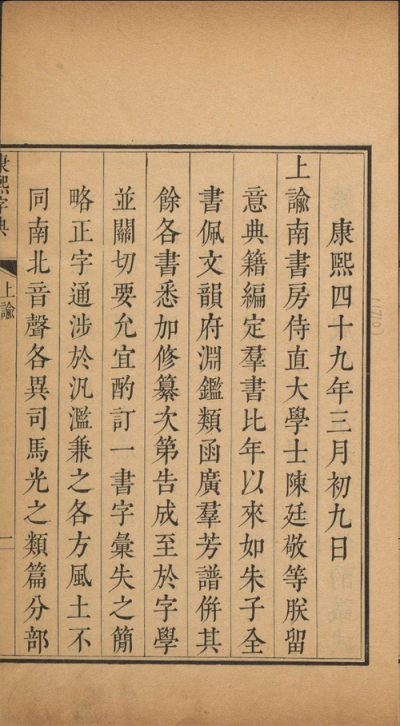 康熙四十九年三月初九日
上諭南書房侍直大學士陳廷敬等朕留
意典籍編定羣書比年以來如朱子全
書佩文韻府淵鑑類函廣羣芳譜併其
餘各書悉加修纂次第告成至於字學
並關切要允宜酌訂一書字彙失之簡
略正字通涉於汎濫兼之各方風土不
同南北音聲各異司馬光之類篇分部
康熙字典 上諭 一
(1710)